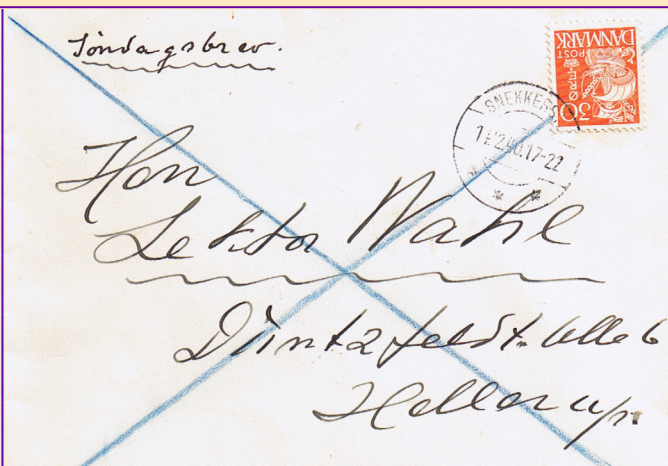 Søndagsbrev.
DANMARK
POST
FÆRØ
30
SNEKKERS
17-22
Herr
Lektor Wahl
Duntzfeldt. Alle 6
Hellerup.